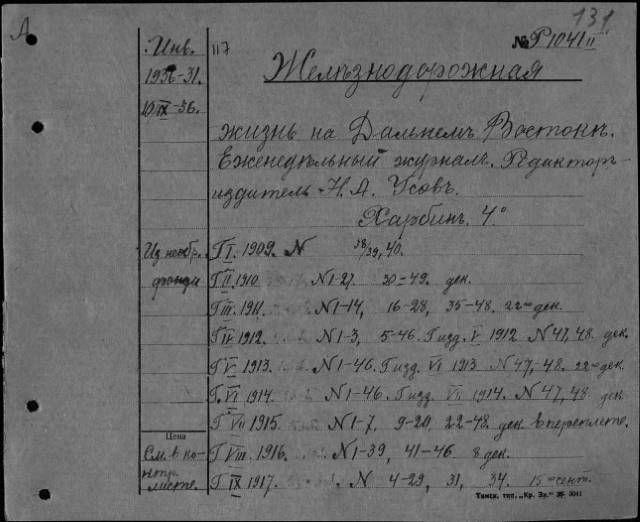 131
Инв. 117 №Р1041 II
1936-31. Желѣзнодорожная
10/IX-36.
жизнь на Дальнемъ Востокѣ.
Еженедѣльный журналъ. Редакторъ-
издатель Н. А. Усовъ.
Харбинъ. 4°
Из необр. Г I. 1909. N 38/39, 40.
фонда Г II. 1910 N 1-27. 30-49. дек.
Г III. 1911. N 1-14, 16-28, 35-48. 22 дек.
Г IV 1912. N 1-3, 5-46. Г изд. V 1912 N 47, 48. дек.
Г V 1913. N 1-46. Г изд. VI 1913 N 47,-48. 22 дек.
Г. VI 1914. N 1-46. Г изд. VII 1914. N 47, 48 дек.
Г VII 1915. N 1-7, 9-20, 22-48. дек в переплете.
Цена
См. в ко- Г VIII. 1916. N 1-39, 41-46 8 дек.
нтр.
листе. Г IX 1917. N 4-29, 31, 34. 15 сент.
Томск, тип. „Кр. Зн."